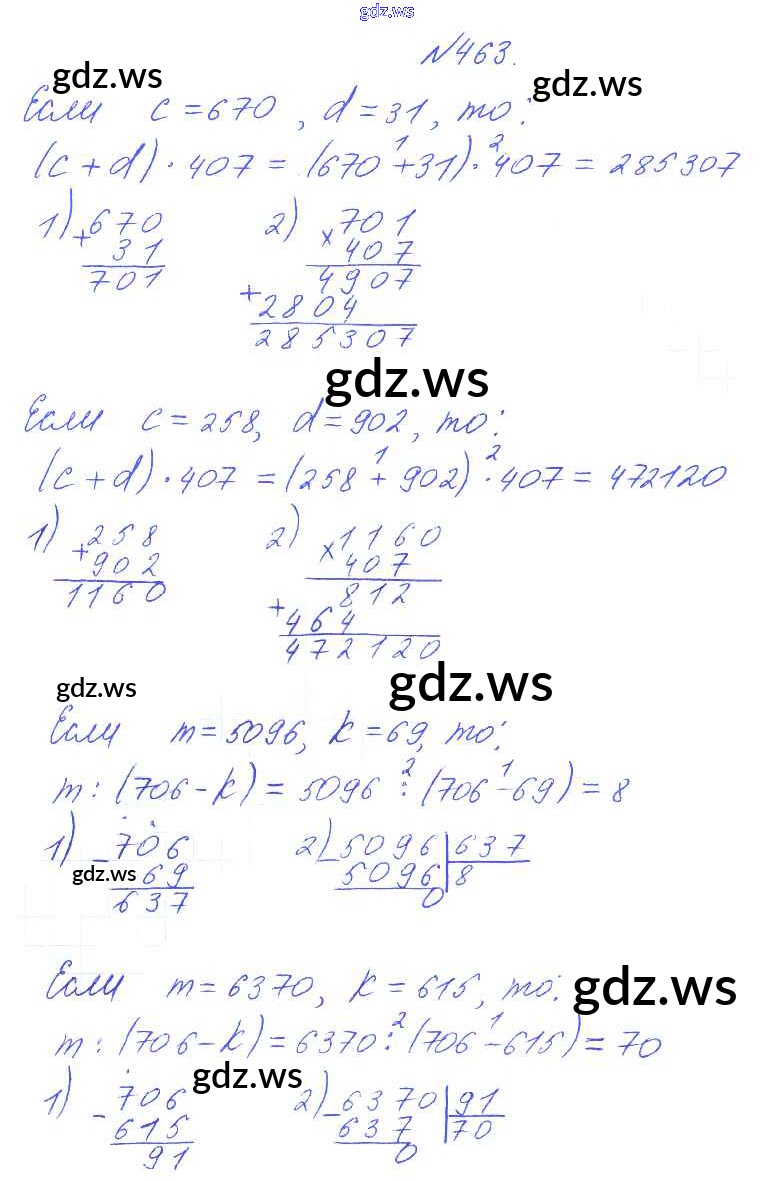 gdz.ws
№463.
gdz.ws
gdz.ws
Если c=670, d=31, то:
(c+d)·407=(670+31)·407=285307
1 2
1) 670 2) 701
+ 31 × 407
701 4907
+ 2804
285307
gdz.ws
Если c=258, d=902, то:
(c+d)·407=(258+902)·407=472120
1 2
1) 258 2) 1160
+ 902 × 407
1160 812
+ 464
472120
gdz.ws
gdz.ws
Если m=5096, k=69, то:
m:(706-k)=5096:(706-69)=8
2 1
1) 706 2) 5096 637
- 69 - 5096 8
637 0
gdz.ws
Если m=6370, k=615, то:
gdz.ws
m:(706-k)=6370:(706-615)=70
2 1
gdz.ws
1) 706 2) 6370 91
- 615 - 637 70
91 0